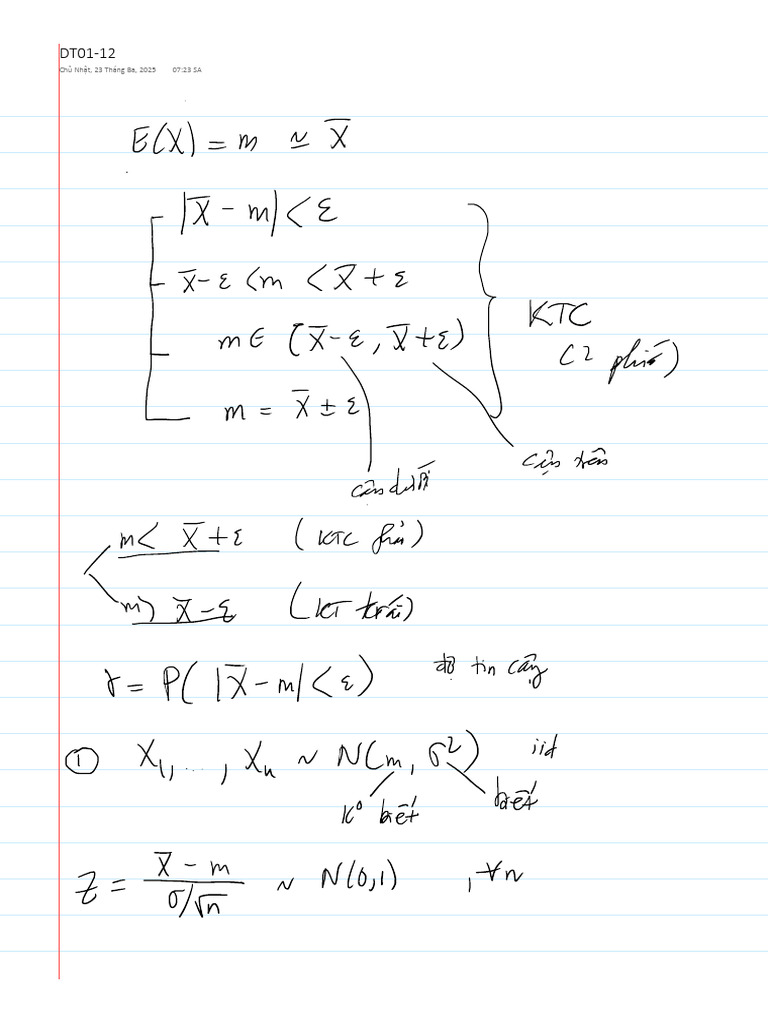 DT01-12
Chủ Nhật, 23 Tháng Ba, 2025 07:23 SA
E(X) = m ≃ X̄
|X̄ - m| < ε
X̄ - ε < m < X̄ + ε
m ∈ (X̄ - ε, X̄ + ε)
m = X̄ ± ε
KTC
(2 phía)
cận trên
cận dưới
m < X̄ + ε (KTC phải)
m > X̄ - ε (KT trái)
γ = P( |X̄ - m| < ε) độ tin cậy
① X₁, ..., Xₙ ~ N(m, σ²) iid
K⁰ biết biết
Z = (X̄ - m)/(σ/√n) ~ N(0,1) , ∀n